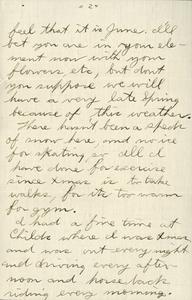 - 2 -
feel that it is June. I'll
bet you are in your ele-
ment now with your
flowers, etc, but don't
you suppose we will
have a very late Spring
because of this weather.
There hasn't been a speck
of snow here, and no ice
for skating, so all I
have done for exercise
since Xmas is to take
walks, for its too warm
for gym.
I had a fine time at
Childs where I was Xmas
and was out every night
and driving every after-
noon and horse back
riding every morning.